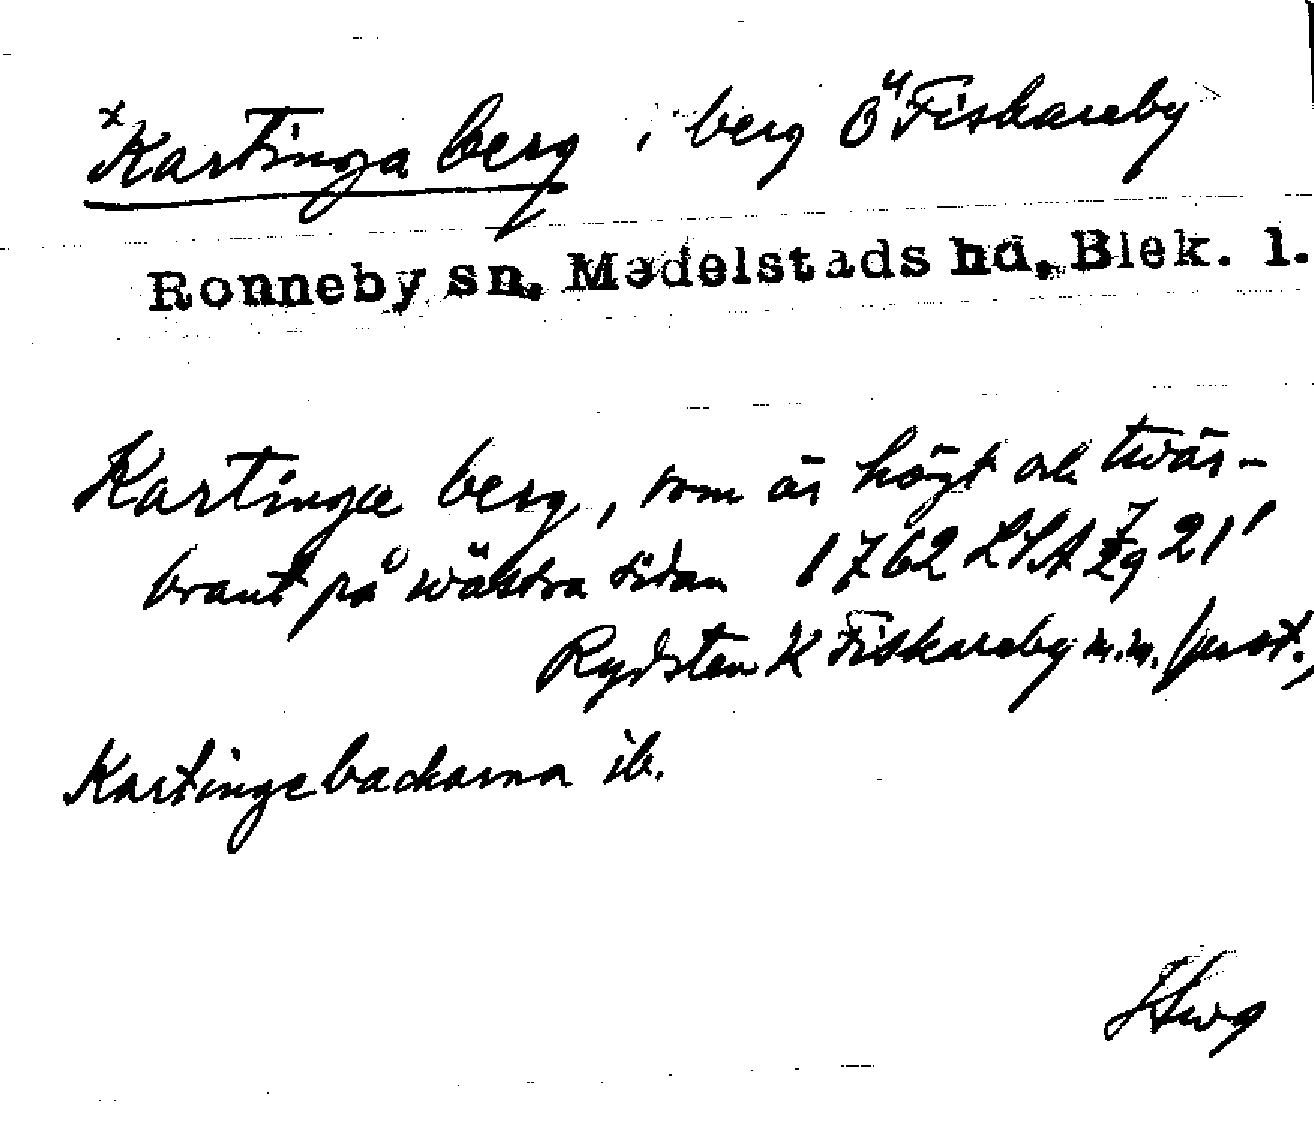 xKartinga berg, berg Ö Fiskareby
Ronneby sn. Medelstads hd, Blek. l.
Kartinga berg, som är högt och twär-
brant på wästra sidan 1762 LSA 7/29 21'
Rydsten K Fiskareby m.m. (prot.)
Kartingebackarna ib.